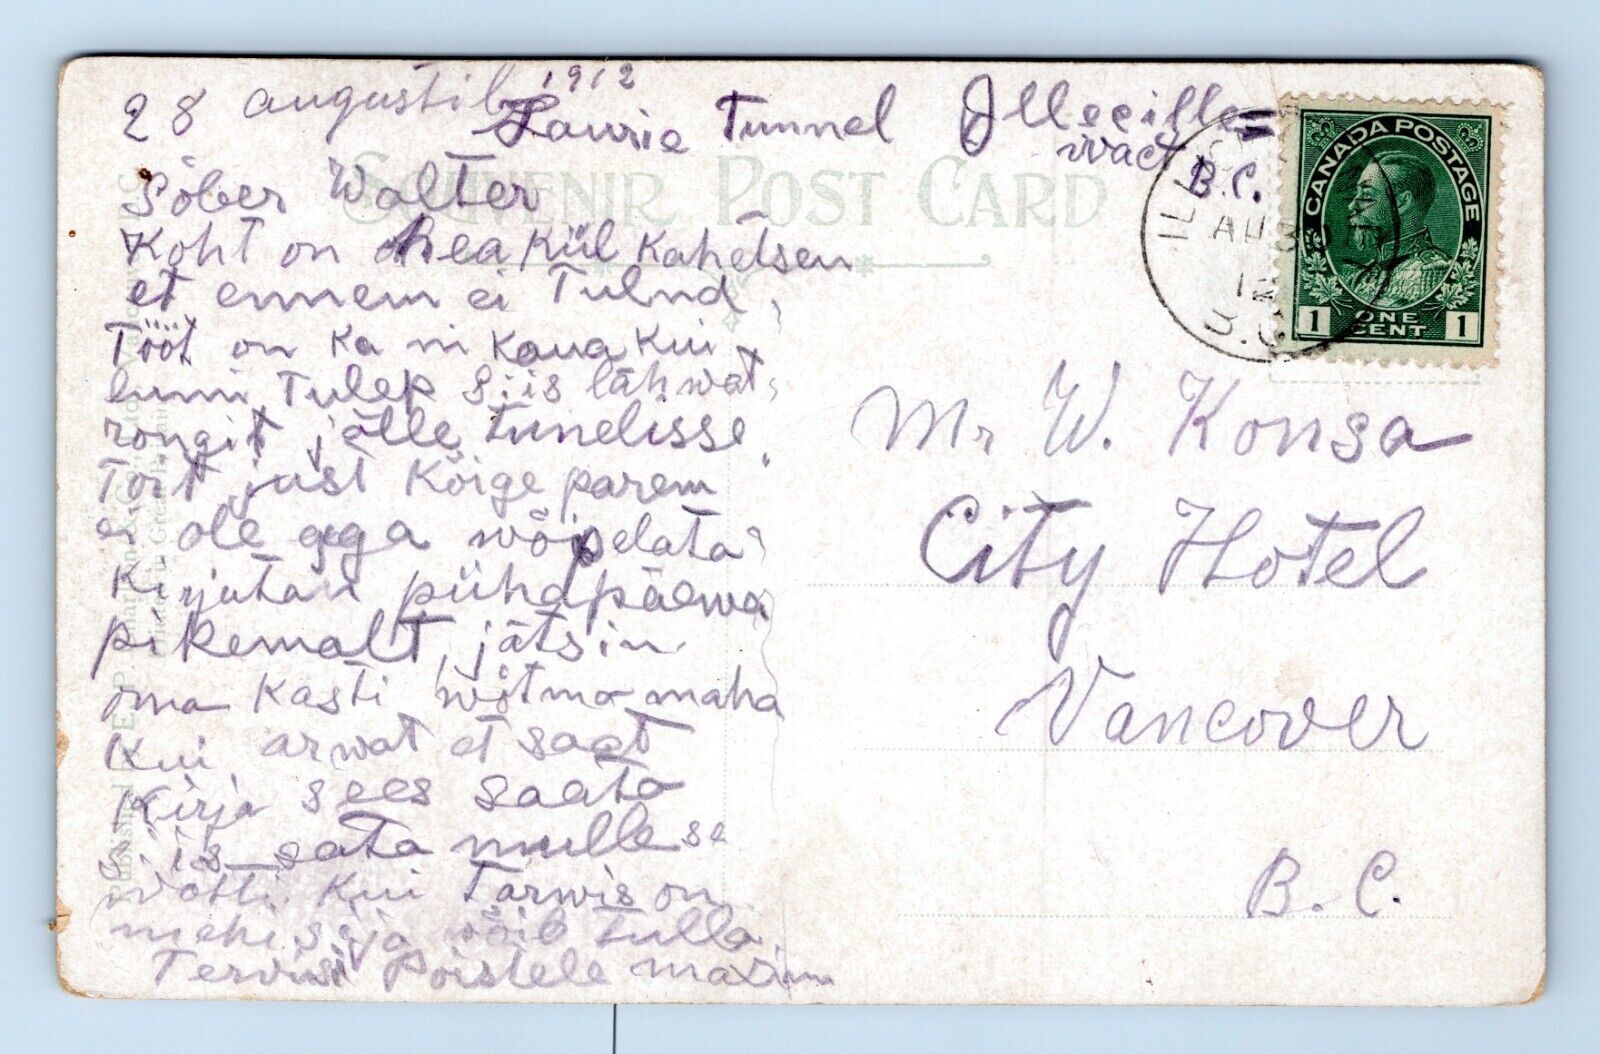 28 augustil 1912
Laurie Tunnel Illecille=
wact
B.C.
SOUVENIR POST CARD
Sõber Walter
Koht on hea kül kahetsen
et ennem ei Tulnd,
Tööt on ka ni kaua kui
lumi Tulep siis lähwat
rongit jälle tunelisse.
Toit just kõige parem
ei ole aga wõip elata
Kirjutan pühapäewa
pikemalt, jätsin
oma kasti wõtme maha
Kui arwat et saat
Kirja sees saata
siis sata mulle se
wõtti. Kui Tarwis on
mehi sija wõib tulla.
Tervisi Poistele maxim
CANADA POSTAGE
1 ONE CENT 1
AU 30
12
B.C.
Mr W. Konsa
City Hotel
Vancover
B. C.